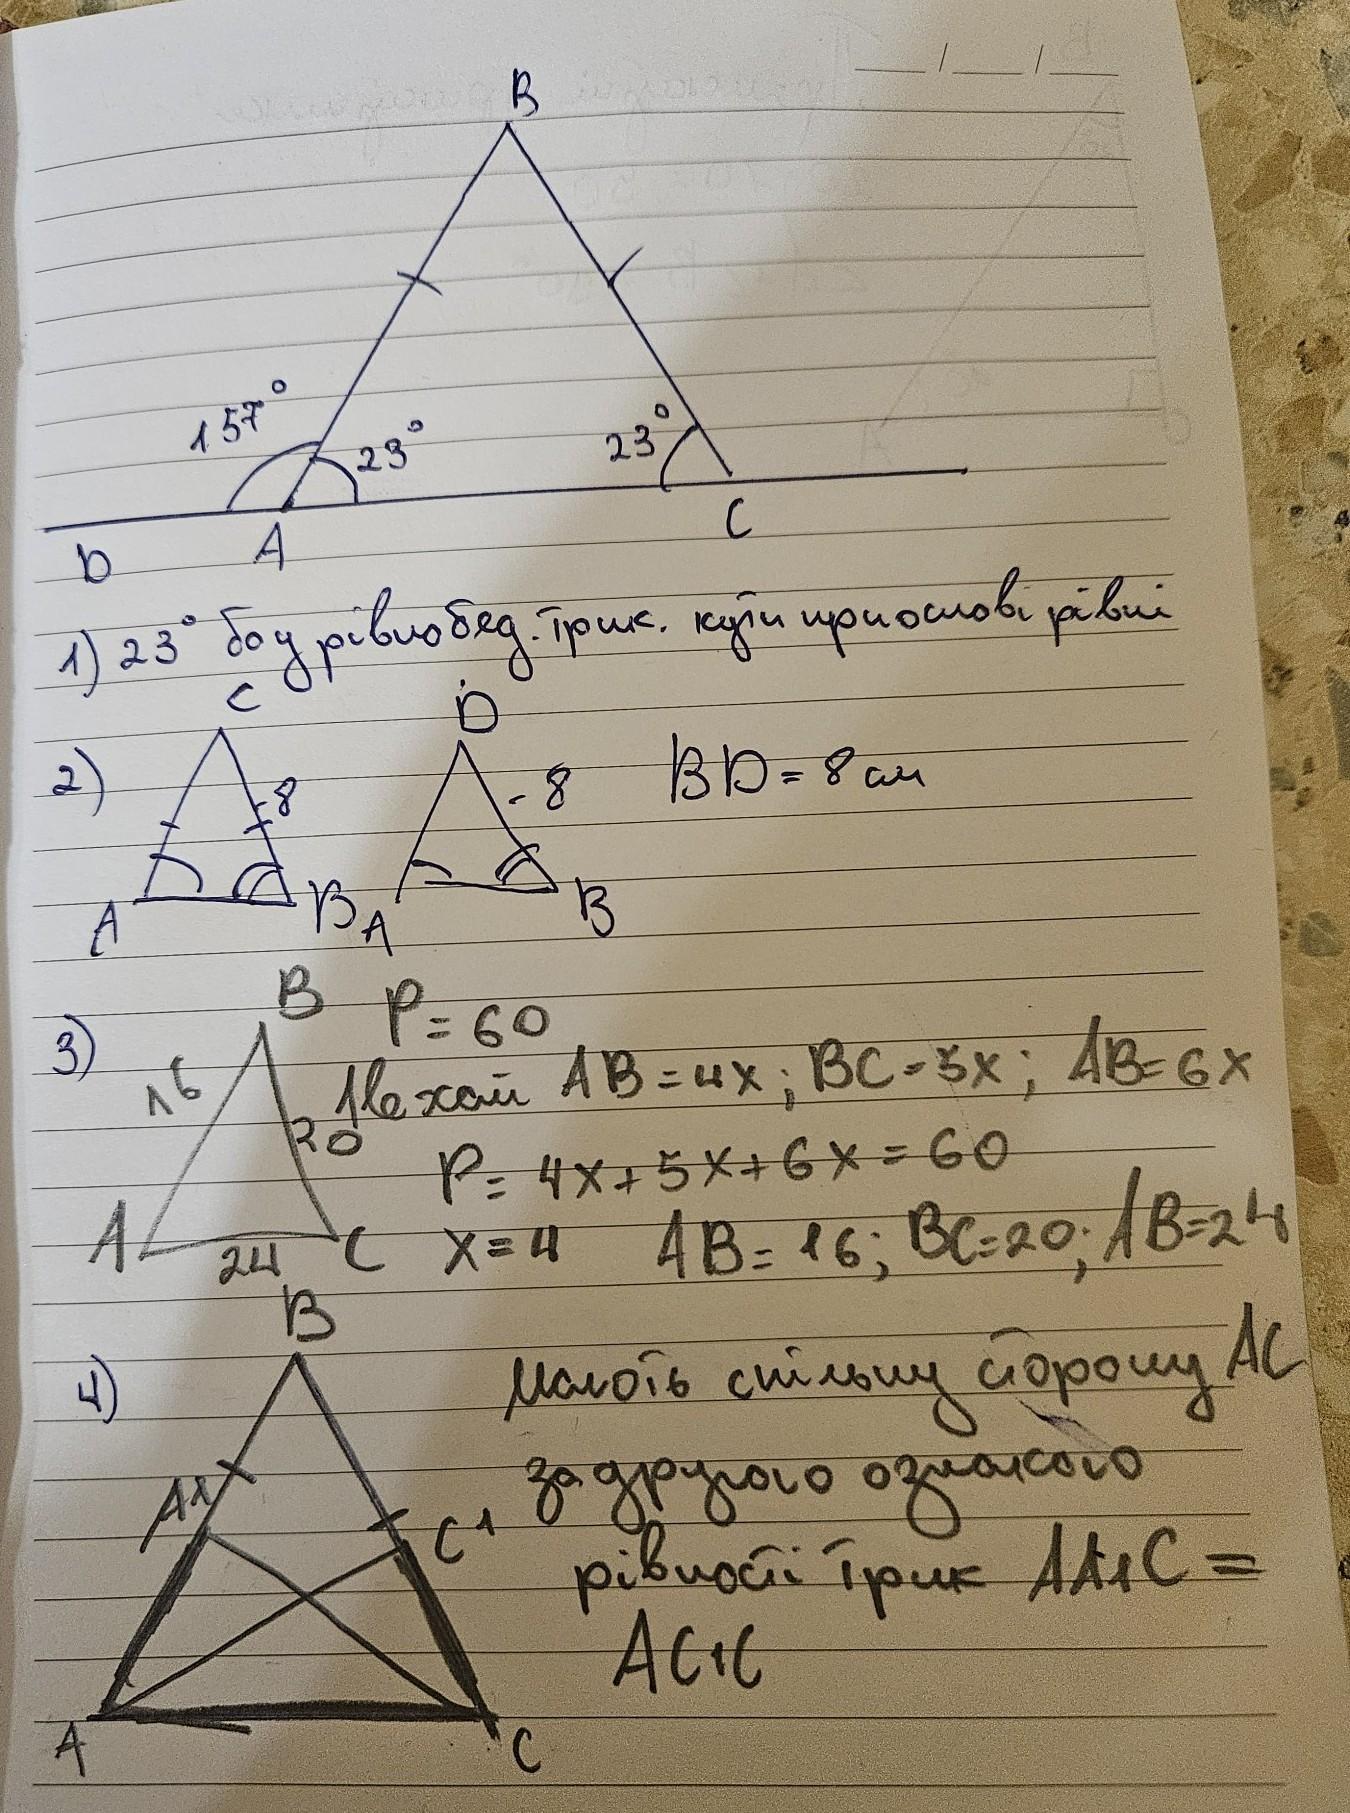 B
157°
23°
23°
D
A
C
1) 23° бо у рівнобед. трик. кути при основі рівні
2)
C
8
A
B
D
8
A
B
BD = 8 см
3)
B
16
20
A
24
C
P = 60
Нехай AB = 4x; BC = 5x; AB = 6x
P = 4x + 5x + 6x = 60
x = 4 AB = 16; BC = 20; AB = 24
4)
B
A1
C1
A
C
мають спільну сторону AC
за другою ознакою
рівності трик AA1C =
AC1C